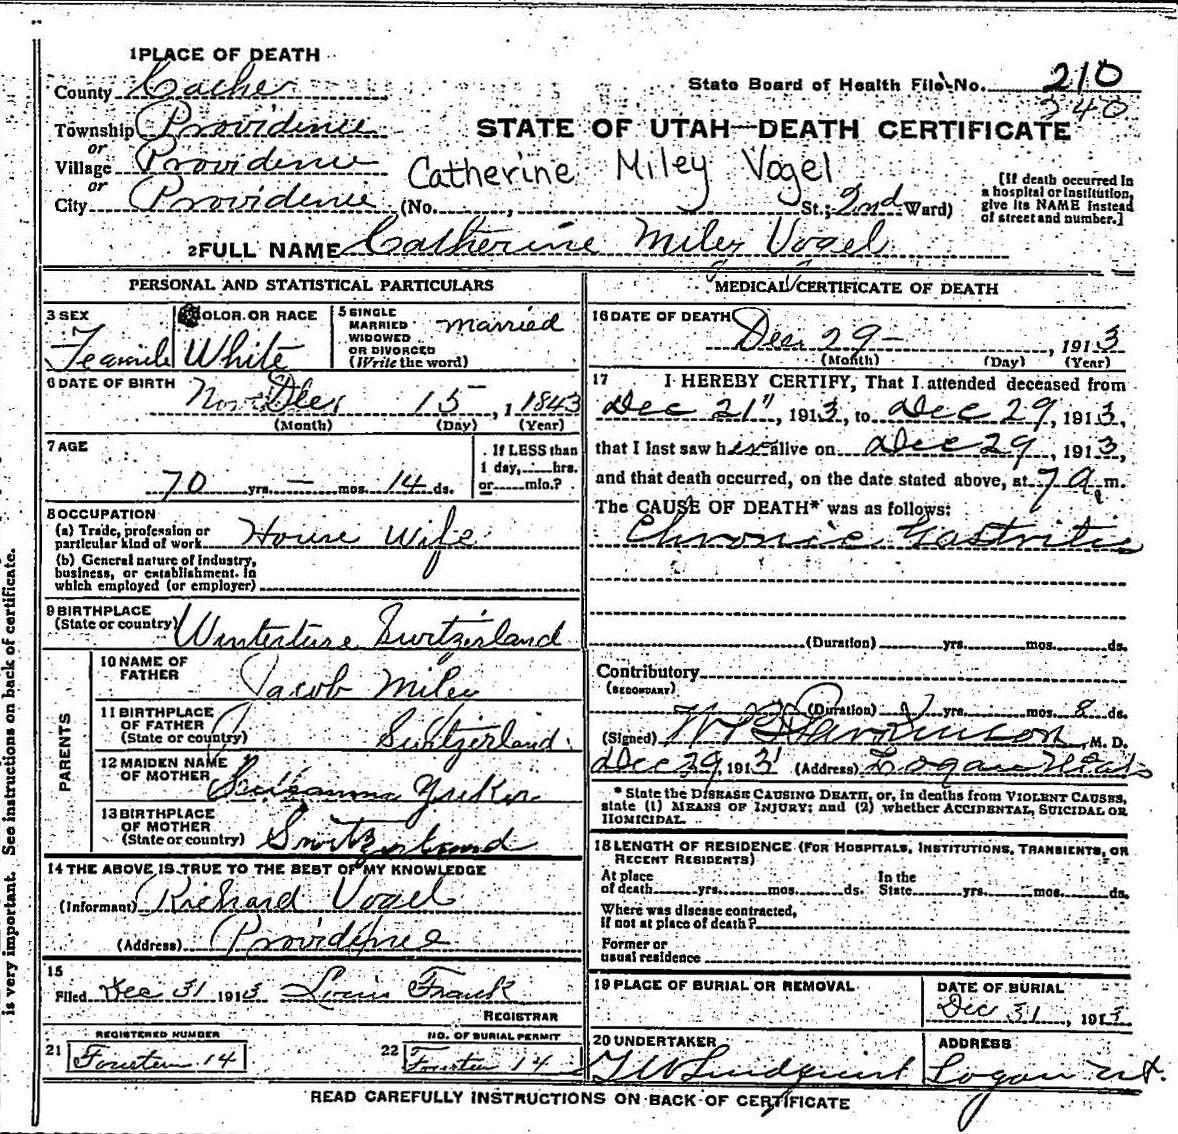 1 PLACE OF DEATH
County Cache
State Board of Health File No. 210
340
Township Providence
or
STATE OF UTAH—DEATH CERTIFICATE
Village Providence
or
Catherine Miley Vogel
City Providence (No. , St.; 2nd Ward)
[If death occurred in
a hospital or institution,
give its NAME instead
of street and number.]
2 FULL NAME Catherine Miley Vogel
PERSONAL AND STATISTICAL PARTICULARS
3 SEX
Feamile
COLOR OR RACE
White
5 SINGLE
MARRIED
WIDOWED
OR DIVORCED
(Write the word)
married
6 DATE OF BIRTH
Nov Dec 15, 1 1843
(Month) (Day) (Year)
7 AGE
70 yrs. — mos. 14 ds.
If LESS than
1 day, hrs.
or min.?
8 OCCUPATION
(a) Trade, profession or
particular kind of work House Wife
(b) General nature of industry,
business, or establishment in
which employed (or employer)
9 BIRTHPLACE
(State or country) Winterture Switzerland
PARENTS
10 NAME OF
FATHER
Jacob Miley
11 BIRTHPLACE
OF FATHER
(State or country)
Switzerland
12 MAIDEN NAME
OF MOTHER
13 BIRTHPLACE
OF MOTHER
(State or country)
Switzerland
14 THE ABOVE IS TRUE TO THE BEST OF MY KNOWLEDGE
(Informant) Richard Vogel
(Address) Providence
15
Filed Dec 31 1913 Louis Frank
REGISTRAR
REGISTERED NUMBER
21 Fourteen 14
NO. OF BURIAL PERMIT
22 Fourteen 14
MEDICAL CERTIFICATE OF DEATH
16 DATE OF DEATH
Dec 29 - , 1913
(Month) (Day) (Year)
17 I HEREBY CERTIFY, That I attended deceased from
Dec 21", 1913, to Dec 29, 1913,
that I last saw her alive on Dec 29, 1913,
and that death occurred, on the date stated above, at 7 a. m.
The CAUSE OF DEATH* was as follows:
Chronic Gastritis
(Duration) yrs. mos. ds.
Contributory
(SECONDARY)
(Duration) yrs. mos. 8 ds.
(Signed) M. D.
Dec 29, 1913 (Address) Logan Utah
* State the DISEASE CAUSING DEATH, or, in deaths from VIOLENT CAUSES,
state (1) MEANS OF INJURY; and (2) whether ACCIDENTAL, SUICIDAL OR
HOMICIDAL.
18 LENGTH OF RESIDENCE (FOR HOSPITALS, INSTITUTIONS, TRANSIENTS, OR
RECENT RESIDENTS)
At place
of death yrs. mos. ds.
In the
State yrs. mos. ds.
Where was disease contracted,
if not at place of death?
Former or
usual residence
19 PLACE OF BURIAL OR REMOVAL
DATE OF BURIAL
Dec 31, 1913
20 UNDERTAKER
T W Lundquist
ADDRESS
Logan Ut.
READ CAREFULLY INSTRUCTIONS ON BACK OF CERTIFICATE
is very important. See instructions on back of certificate.